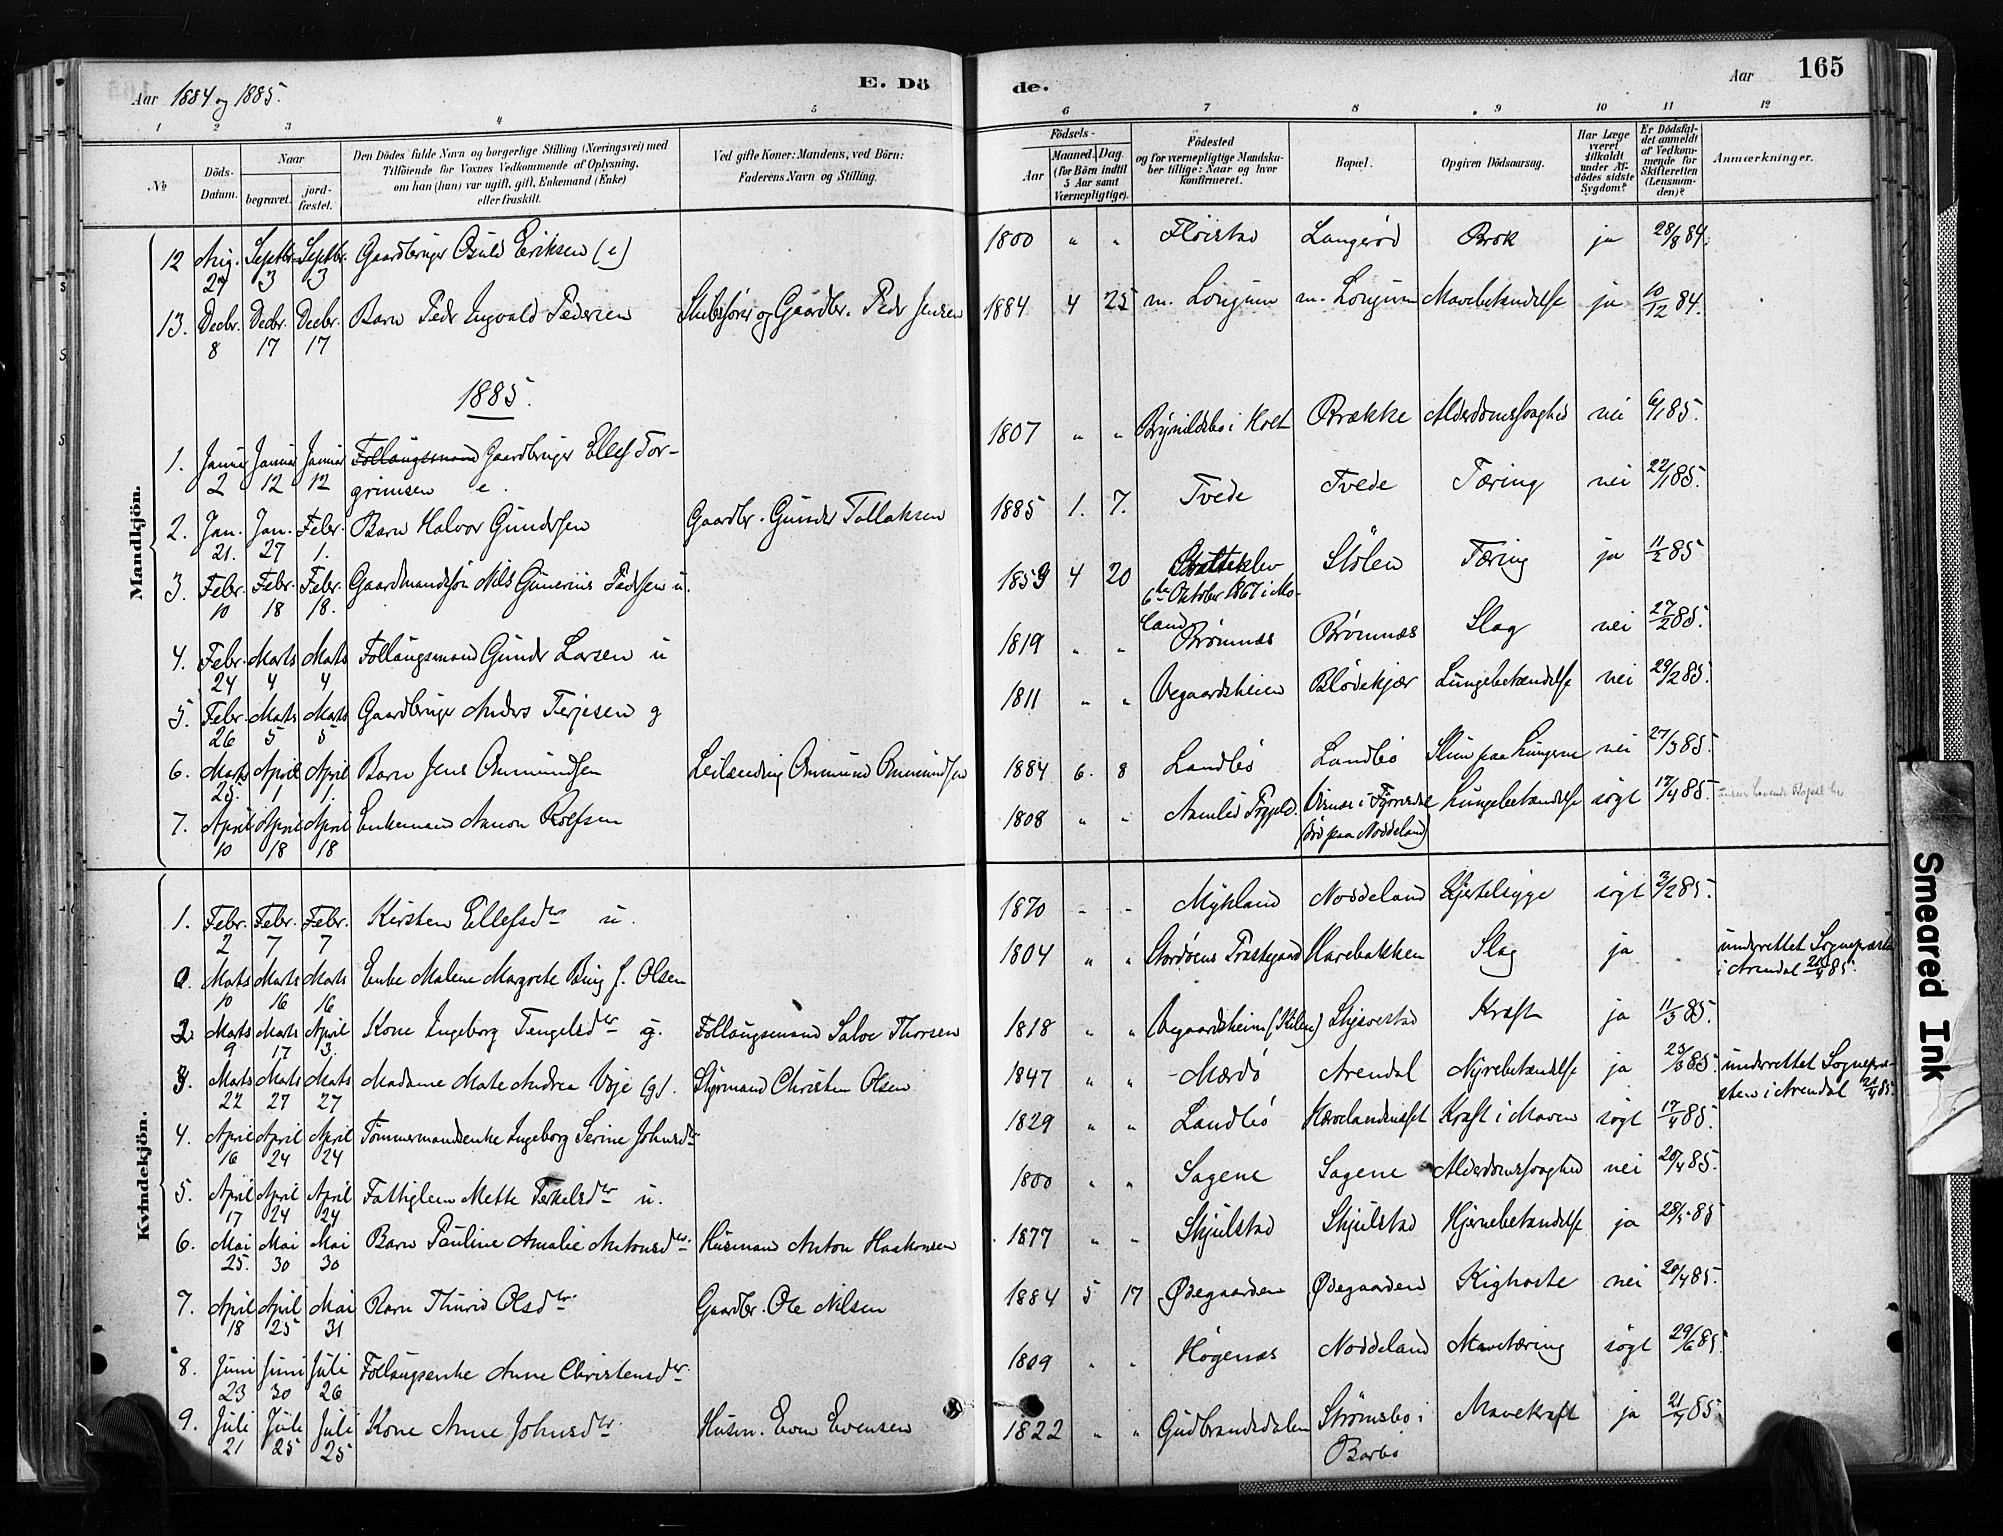 Aar 1884 og 1885.
E. Dö
de.
Aar
165
1 2 3 4 5 6 7 8 9 10 11 12
No
Döds-Datum.
Naar
begravet.
jordfæstet.
Den Dödes fulde Navn og borgerlige Stilling (Næringsvei) med
Tilföiende for Voxnes Vedkommende af Oplysning,
om han (hun) var ugift, gift, Enkemand (Enke)
eller fraskilt.
Ved gifte Koner: Mandens, ved Börn:
Faderens Navn og Stilling.
Födsels-
Aar
Maaned.
Dag.
(for Börn indtil
5 Aar samt
Værnepligtige).
Födested
og for værnepligtige Mandskaber tillige: Naar og hvor
konfirmeret.
Bopæl.
Opgiven Dödsaarsag.
Har Læge
været
tilkaldt
under Afdödes sidste
Sygdom?
Er Dödsfaldet anmeldt
af Vedkommende for
Skifteretten
(Lensmanden)?
Anmærkninger.
Mandkjön.
12 Aug. 27 Septbr. 3 Septbr. 3 Gaardbruger Osuld Eriksen (e) 1800 " " Fløistad Langerød Brok ja 28/8 84.
13. Decbr. 8 Decbr. 17 Decbr. 17 Barn Peder Ingvald Pedersen Skibsfører og Gaardbr. Peder Jensen 1884 4 25 m. Longum m. Longum Mavebetændelse ja 10/12 84.
1885.
1. Januar 2 Januar 12 Januar 12 Follaugsmand Gaardbruger Ellef Torgrimsen e. 1807 " " Brynildsbo i Holt Brække Alderdomssvaghed nei 6/1 85.
2. Jan. 21. Jan. 27 Febr. 1. Barn Halvor Gundersen Gaardbr. Gunder Tallaksen 1885 1. 7. Tvede Tvede Tæring nei 22/1 85.
3. Febr. 10 Febr. 18 Febr. 18. Gaardmandssøn Nils Gunerius Pedersen u. 1859 4 20 Bratteklev 6te Oktober 1867 i Moland Stølen Tæring ja 11/2 85
4. Febr. 24 Marts 4 Marts 4 Follaugsmand Gunder Larsen u 1819 " " Brømnæs Brømnæs Slag nei 27/2 85.
5. Febr. 26 Marts 5 Marts 5 Gaardbruger Anders Terjesen g 1811 " " Vegaardsheien Blødekjær Lungebetændelse nei 29/2 85.
6. Marts 25. April 1 April 1. Barn Jens Anmundsen Leilænding Anmund Anmundsen 1884 6. 8 Landbø Landbø Slim paa Lungerne nei 27/3 85.
7. April 10 April 18 April 18 Enkemand Aanon Rolfsen 1808 " " Aamlid Præstgjeld (død paa Noddeland) Lungebetændelse søgt 17/4 85.
Kvindekjön.
1. Febr. 2 Febr. 7 Febr. 7 Kirsten Ellefsdtr u. 1870 - - Mykland Noddeland Kjertelsyge søgt 3/2 85.
0 Marts 10 Marts 16 Marts 16 Enke Malene Margrete Buing f. Olsen 1804 " " Stordøens Præstegaard Harebakken Slag ja underrettet Sognepræsten i Arendal 21/4 85.
2. Marts 9 Marts 17 April 3. Kone Ingeborg Tengelsdtr g. Follaugsmand Salve Thorsen 1818 " " Vegaardsheien (Kilen) Skjævestad Kræft ja 11/3 85.
3. Marts 22 Marts 27 Marts 27 Madame Mate Andrea Voje (g). Styrmand Christen Olsen 1847 " " Mærdø Arendal Nyrebetændelse ja 23/3 85. underrettet Sognepræsten i Arendal 21/4 85.
4. April 16 April 24 April 24 Tømmermandsenke Ingeborg Serine Johnsdtr 1829 " " Landbø Kræft i Maven søgt 17/4 85.
5. April 17 April 24 April 24 Fattiglem Mette Terkelsdtr u. 1800 " " Sagene Sagene Alderdomssvaghed nei 20/4 85.
6. Mai 25. Mai 30 Mai 30 Barn Pauline Amalie Antonsdtr Husmand Anton Haakonsen 1877 " " Skjulstad Skjulstad Hjernebetændelse ja 28/5 85
7. April 18 April 25 Mai 31 Barn Thurid Olsdtr Gaardbr. Ole Nilsen 1884 5 17 Ødegaarden Ødegaarden Kighoste nei 20/4 85.
8. Juni 23 Juni 30 Juli 26 Follaugsenke Anne Christensdtr 1809 " " Høgenæs Noddeland Mavetæring søgt 29/6 85
9. Juli 21 Juli 25 Juli 25 Kone Anne Johnsdtr Husm. Even Evensen 1822 " " Gudbrandsdalen Strømsbo i Barbo Mavekræft ja 21/7 85
Smeared Ink